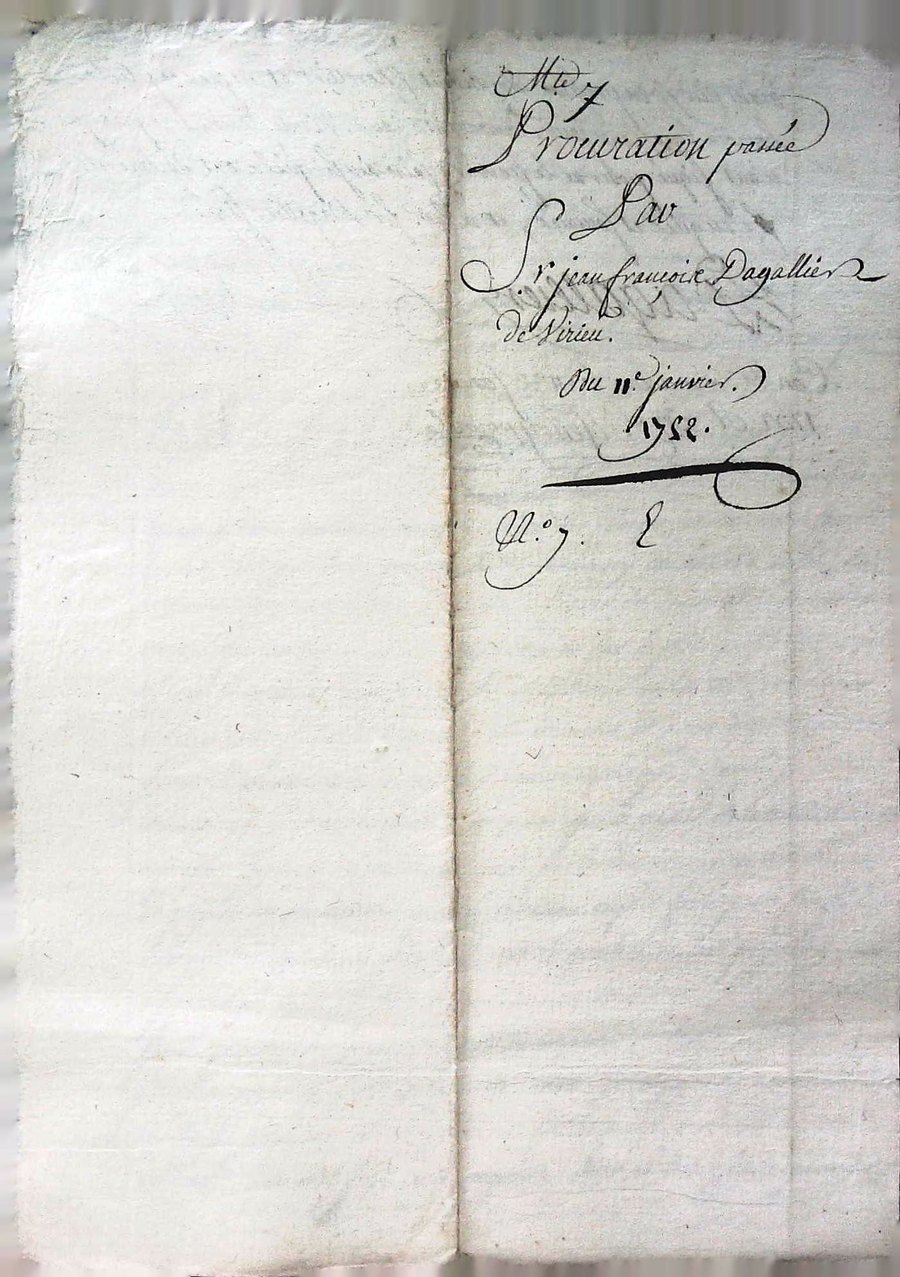 7
Procuration passée
Par
Sr. jean françois Dagallier
de Virieu.
Du 11e. janvier.
1752.
N.o 7. E